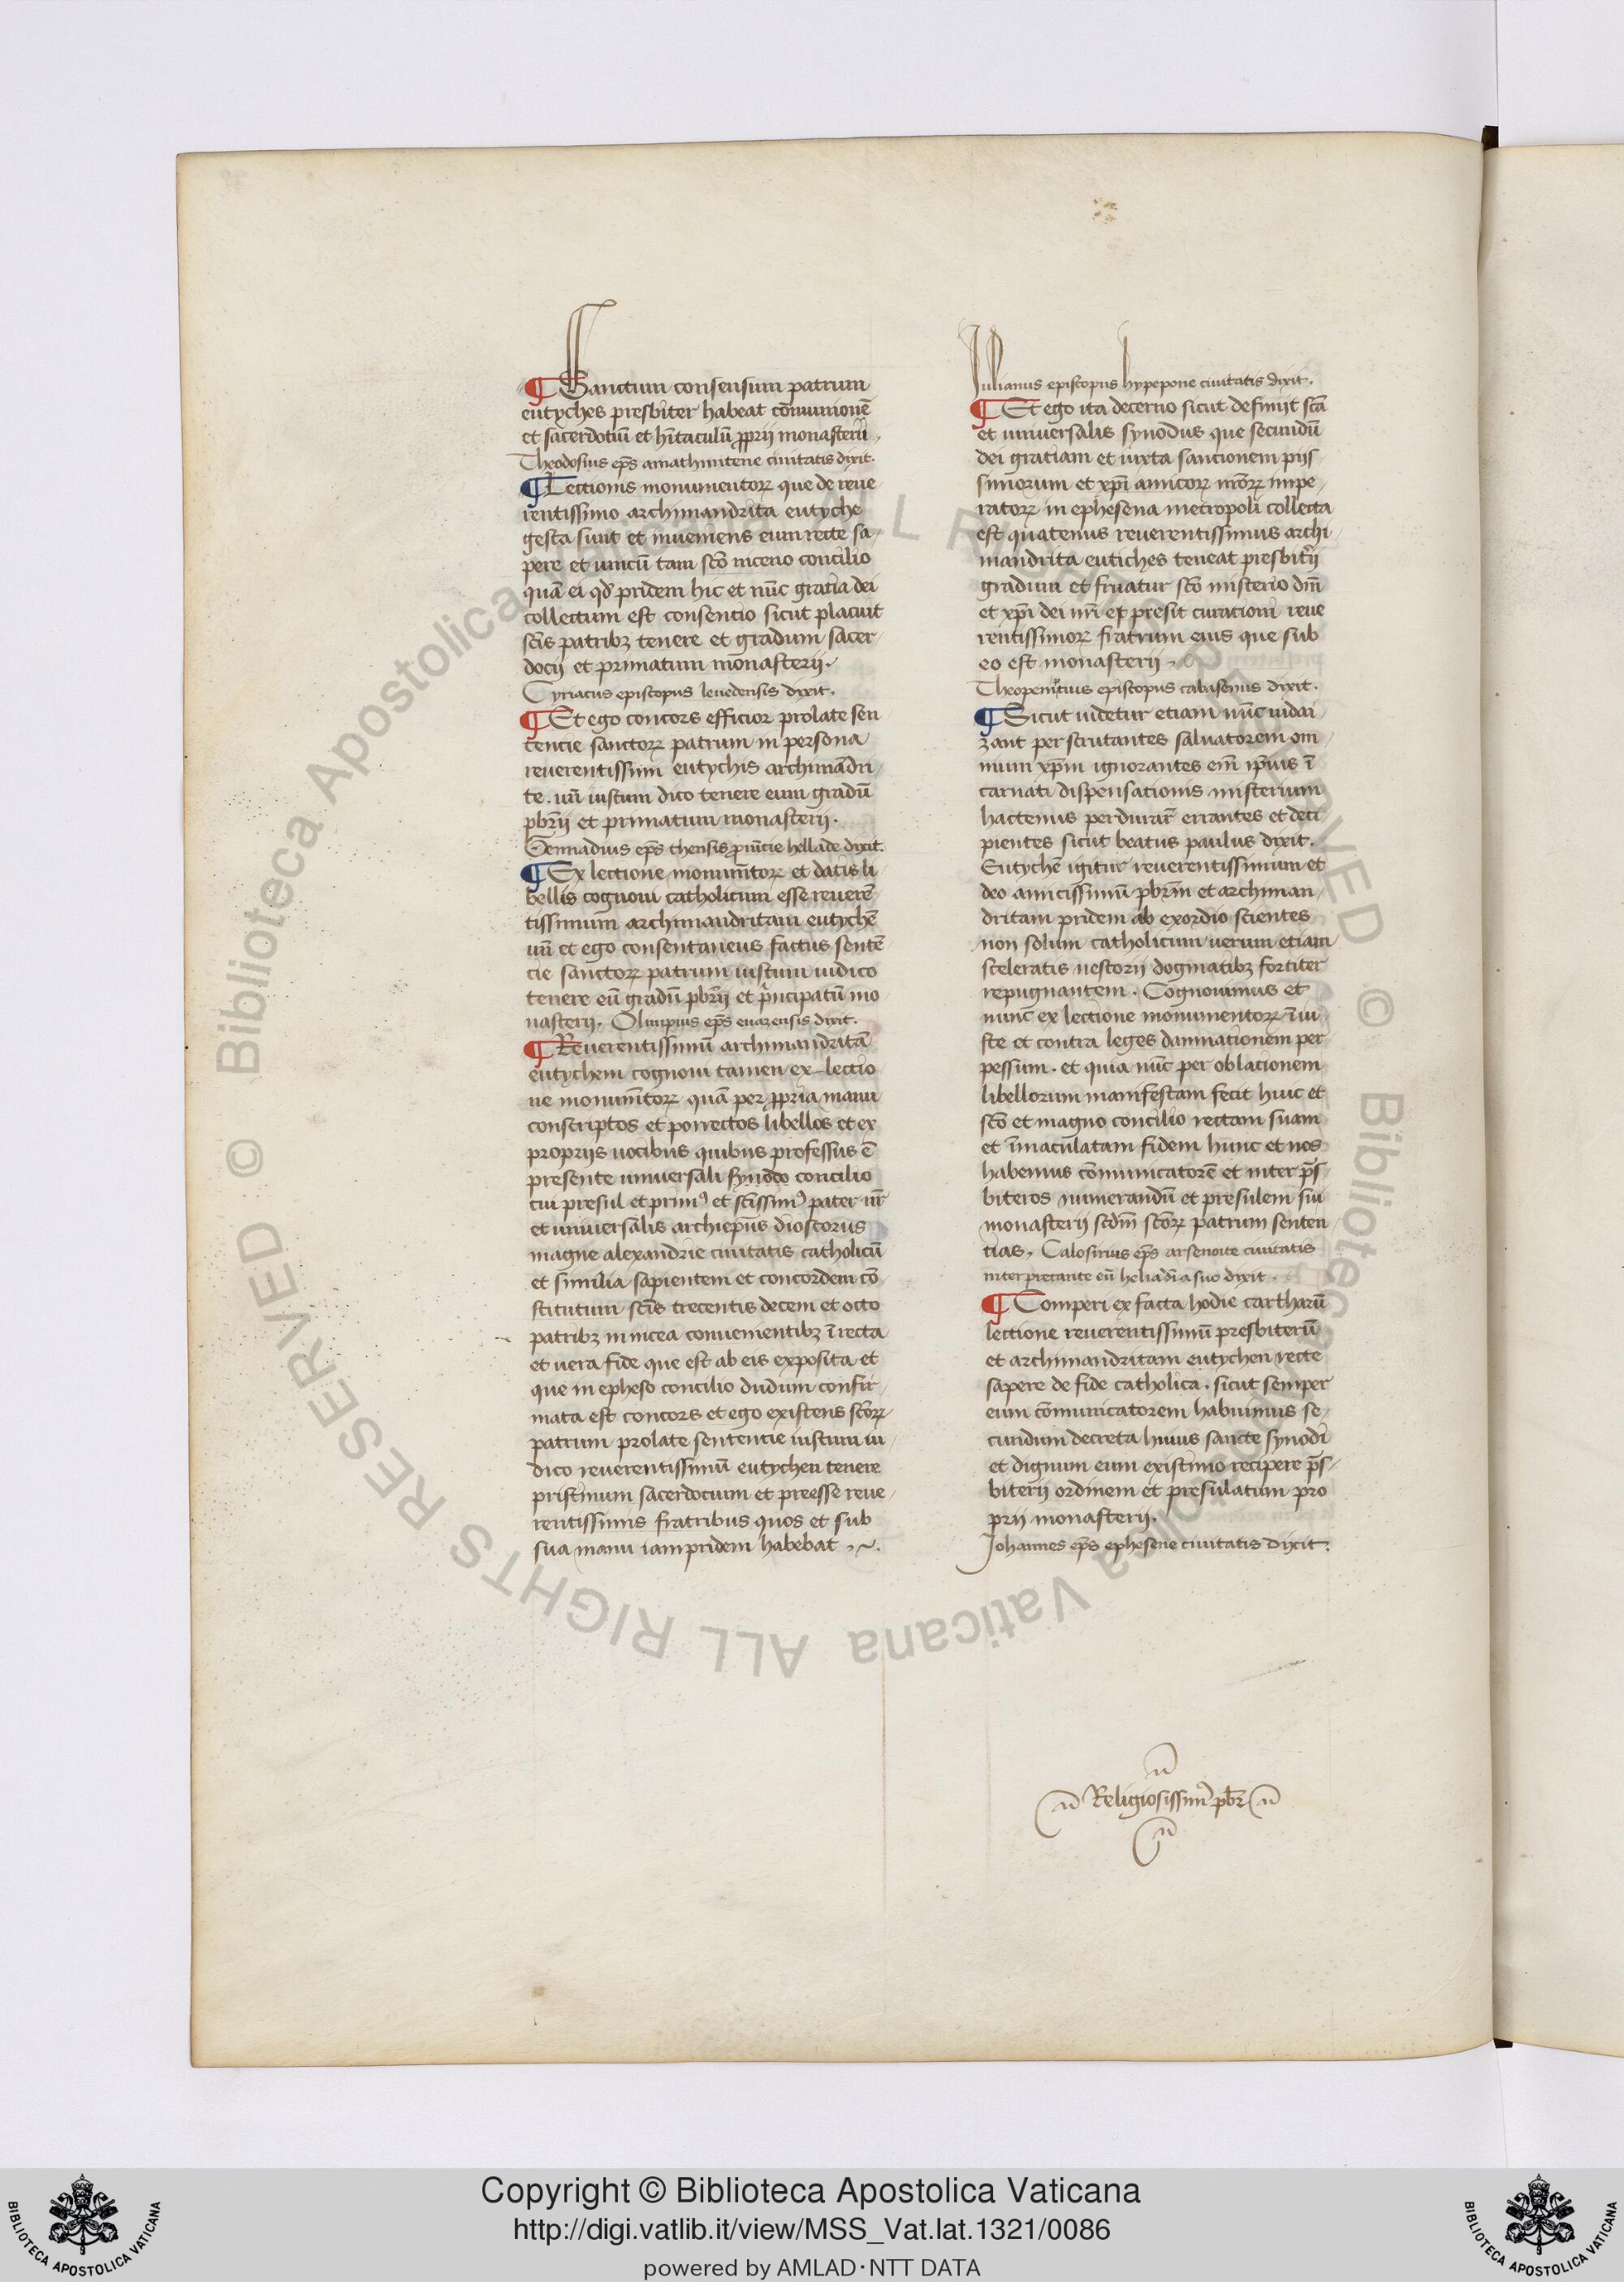 ¶ Sanctum consensum patrum
eutyches presbiter habeat cōmunionē
et sacerdotiū et hītaculū ꝓprii monasterii.
Theodosius ep̄s amathuntene ciuitatis dixit.
¶ Lectionis monumentoꝝ que de reue
rentissimo archimandrita eutyche
gesta sunt et inueniens eum recte sa-
pere et unicū tam sc̄o niceno concilio
quā ei qd̄ pridem hic et nūc gratia dei
collectum est consentio sicut placuit
sc̄is patribꝫ tenere et gradum sacer-
docij et primatum monasterij.
Cyriacus episcopus leuedensis dixit.
¶ Et ego concors efficior prolate sen
tencie sanctoꝝ patrum in persona
reuerentissimi eutychis archimādri-
te. uñ iustum dico tenere eum gradū
pbr̄ii et primatum monasterij.
Gennadius ep̄s thensis ꝓuīcie hellade dixit.
¶ Ex lectione monumētoꝝ et datis li-
bellis cognoui catholicum esse reuerē
tissimum archimandritam eutychē
uñ et ego consentaneus factus sentē
cie sanctoꝝ patrum iustum iudico
tenere eū gradū pbr̄ii et p̄ncipatū mo
nasterij. Olimpius ep̄s euazensis dixit.
¶ Reuerentissimū archimandritā
eutychem cognoui tamen ex lectio
ne monumētoꝝ quā per ꝓpria manu
conscriptos et porrectos libellos et ex
propriis uocibus quibus professus ē
presente uniuersali synodo concilio
cui presul et primꝰ et sc̄issimꝰ pater nr̄
et uniuersalis archiep̄us dioscorus
magne alexandrie ciuitatis catholicū
et similia sapientem et concordem cō
stitutum sc̄is trecentis decem et octo
patribꝫ in nicea conuenientibꝫ ī recta
et uera fide que est ab eis exposita et
que in epheso concilio dudum confir-
mata est concors et ego existens sc̄oꝝ
patrum prolate sentencie iustum iu-
dico reuerentissimū eutychen tenere
pristinum sacerdocium et preesse reue-
rentissimis fratribus quos et sub
sua manu iampridem habebat.
Iulianus episcopus hypepone ciuitatis dixit.
¶ Et ego ita decerno sicut definijt sc̄a
et uniuersalis synodus que secundū
dei gratiam et iuxta sanctionem piis
simorum et xp̄i amicoꝝ nr̄oꝝ impe-
ratoꝝ in ephesena metropoli collecta
est quatenus reuerentissimus archi-
mandrita eutiches teneat presbit̄ii
gradum et fruatur sc̄o misterio dn̄i
et xp̄i dei nr̄i et presit curationi reue
rentissimoꝝ fratrum eius que sub
eo est monasterij.
Theopemtius episcopus cabasenus dixit.
¶ Sicut uidetur etiam nūc iudai-
zant perscrutantes saluatorem om-
nium xp̄m ignorantes em̄ ip̄ius ī
carnati dispensationis misterium
hactenus perdurāt errantes et deci
pientes sicut beatus paulus dixit.
Eutychē igitur reuerentissimum et
deo amicissimū pbr̄m et archiman-
dritam pridem ab exordio scientes
non solum catholicum uerum etiam
sceleratis nestorij dogmatibꝫ fortiter
repugnantem. Cognouimus et
nunc ex lectione monumentoꝝ īiu-
ste et contra leges damnationem per
pessum. et quia nūc per oblacionem
libellorum manifestam fecit huic et
sc̄o et magno concilio rectam suam
et īmaculatam fidem hunc et nos
habemus cōmunicatorē et inter p̄s-
biteros numerandū et presulem sui
monasterij scdm̄ sc̄oꝝ patrum senten
tias. Calosirius ep̄s arsenoite ciuitatis
interpretante eū heliadī a suo dixit.
¶ Comperi ex facta hodie carthaꝝ
lectione reuerentissimū presbiterū
et archimandritam eutychen recte
sapere de fide catholica. sicut semper
eum cōmunicatorem habuimus se-
cundum decreta huius sancte synodi
et dignum eum existimo recipere p̄s-
biterij ordinem et presulatum pro
prij monasterij.
Iohannes ep̄s ephesene ciuitatis dixit.
Religiosissimꝰ pbr̄
Copyright © Biblioteca Apostolica Vaticana
http://digi.vatlib.it/view/MSS_Vat.lat.1321/0086
powered by AMLAD·NTT DATA